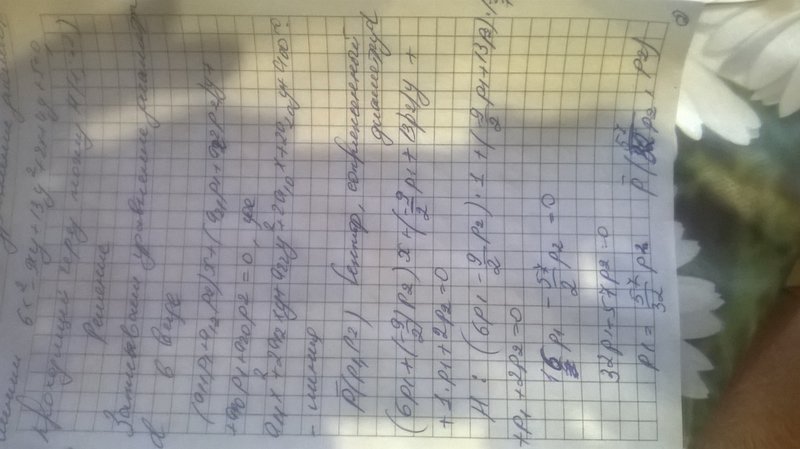 6x² - 9xy + 13y² + 2x + 4y + 5 = 0
проходящий через точку A(1; -2)
Решение
Записываем уравнение диаметра
d в виде
(a₁₁p₁ + a₁₂p₂)x + (a₂₁p₁ + a₂₂p₂)y +
+ a₁₀p₁ + a₂₀p₂ = 0, где
a₁₁x² + 2a₁₂xy + a₂₂y² + 2a₁₀x + 2a₂₀y + a₀₀ = 0
- линия
p̄(p₁, p₂) вектор, сопряженный
диаметру d
(6p₁ + (-9/2)p₂)x + (-9/2 p₁ + 13p₂)y +
+ 1·p₁ + 2p₂ = 0
A: (6p₁ - 9/2 p₂)·1 + (-9/2 p₁ + 13p₂)·
+ p₁ + 2p₂ = 0
16p₁ - 57/2 p₂ = 0
32p₁ - 57p₂ = 0
p₁ = 57/32 p₂ p̄(57/32 p₂, p₂)